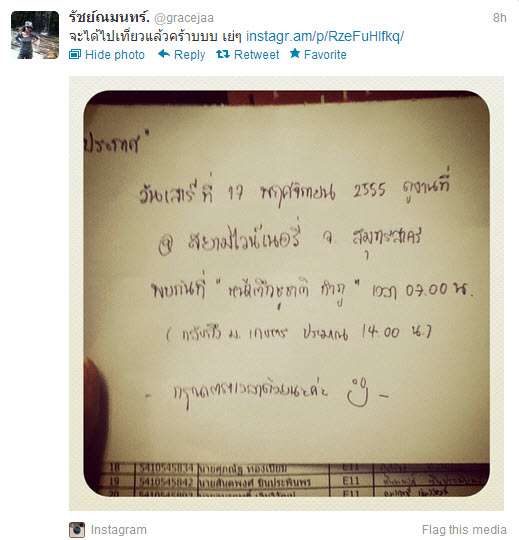 รัชย์ณมนทร์. @gracejaa 8h
จะได้ไปเที่ยวแล้วคร้าบบบ เย่ๆ instagr.am/p/RzeFuHlfkq/
Hide photo Reply Retweet Favorite
ประกาศ
วันเสาร์ที่ 17 พฤศจิกายน 2555 ดูงานที่
@ สยามไวน์เนอรี่ จ. สมุทรสาคร
พบกันที่ " หน้าตึกชูชาติ กำภู " เวลา 07.00 น.
( กลับถึง ม. เกษตร ประมาณ 14.00 น.)
- กรุณาตรงเวลาด้วยนะค่ะ -
18 5410545834 นายศุภณัฐ ทองเปี่ยม E11
19 5410545842 นายสันตพงศ์ ยินประพันพร E11
20 E11
Instagram Flag this media